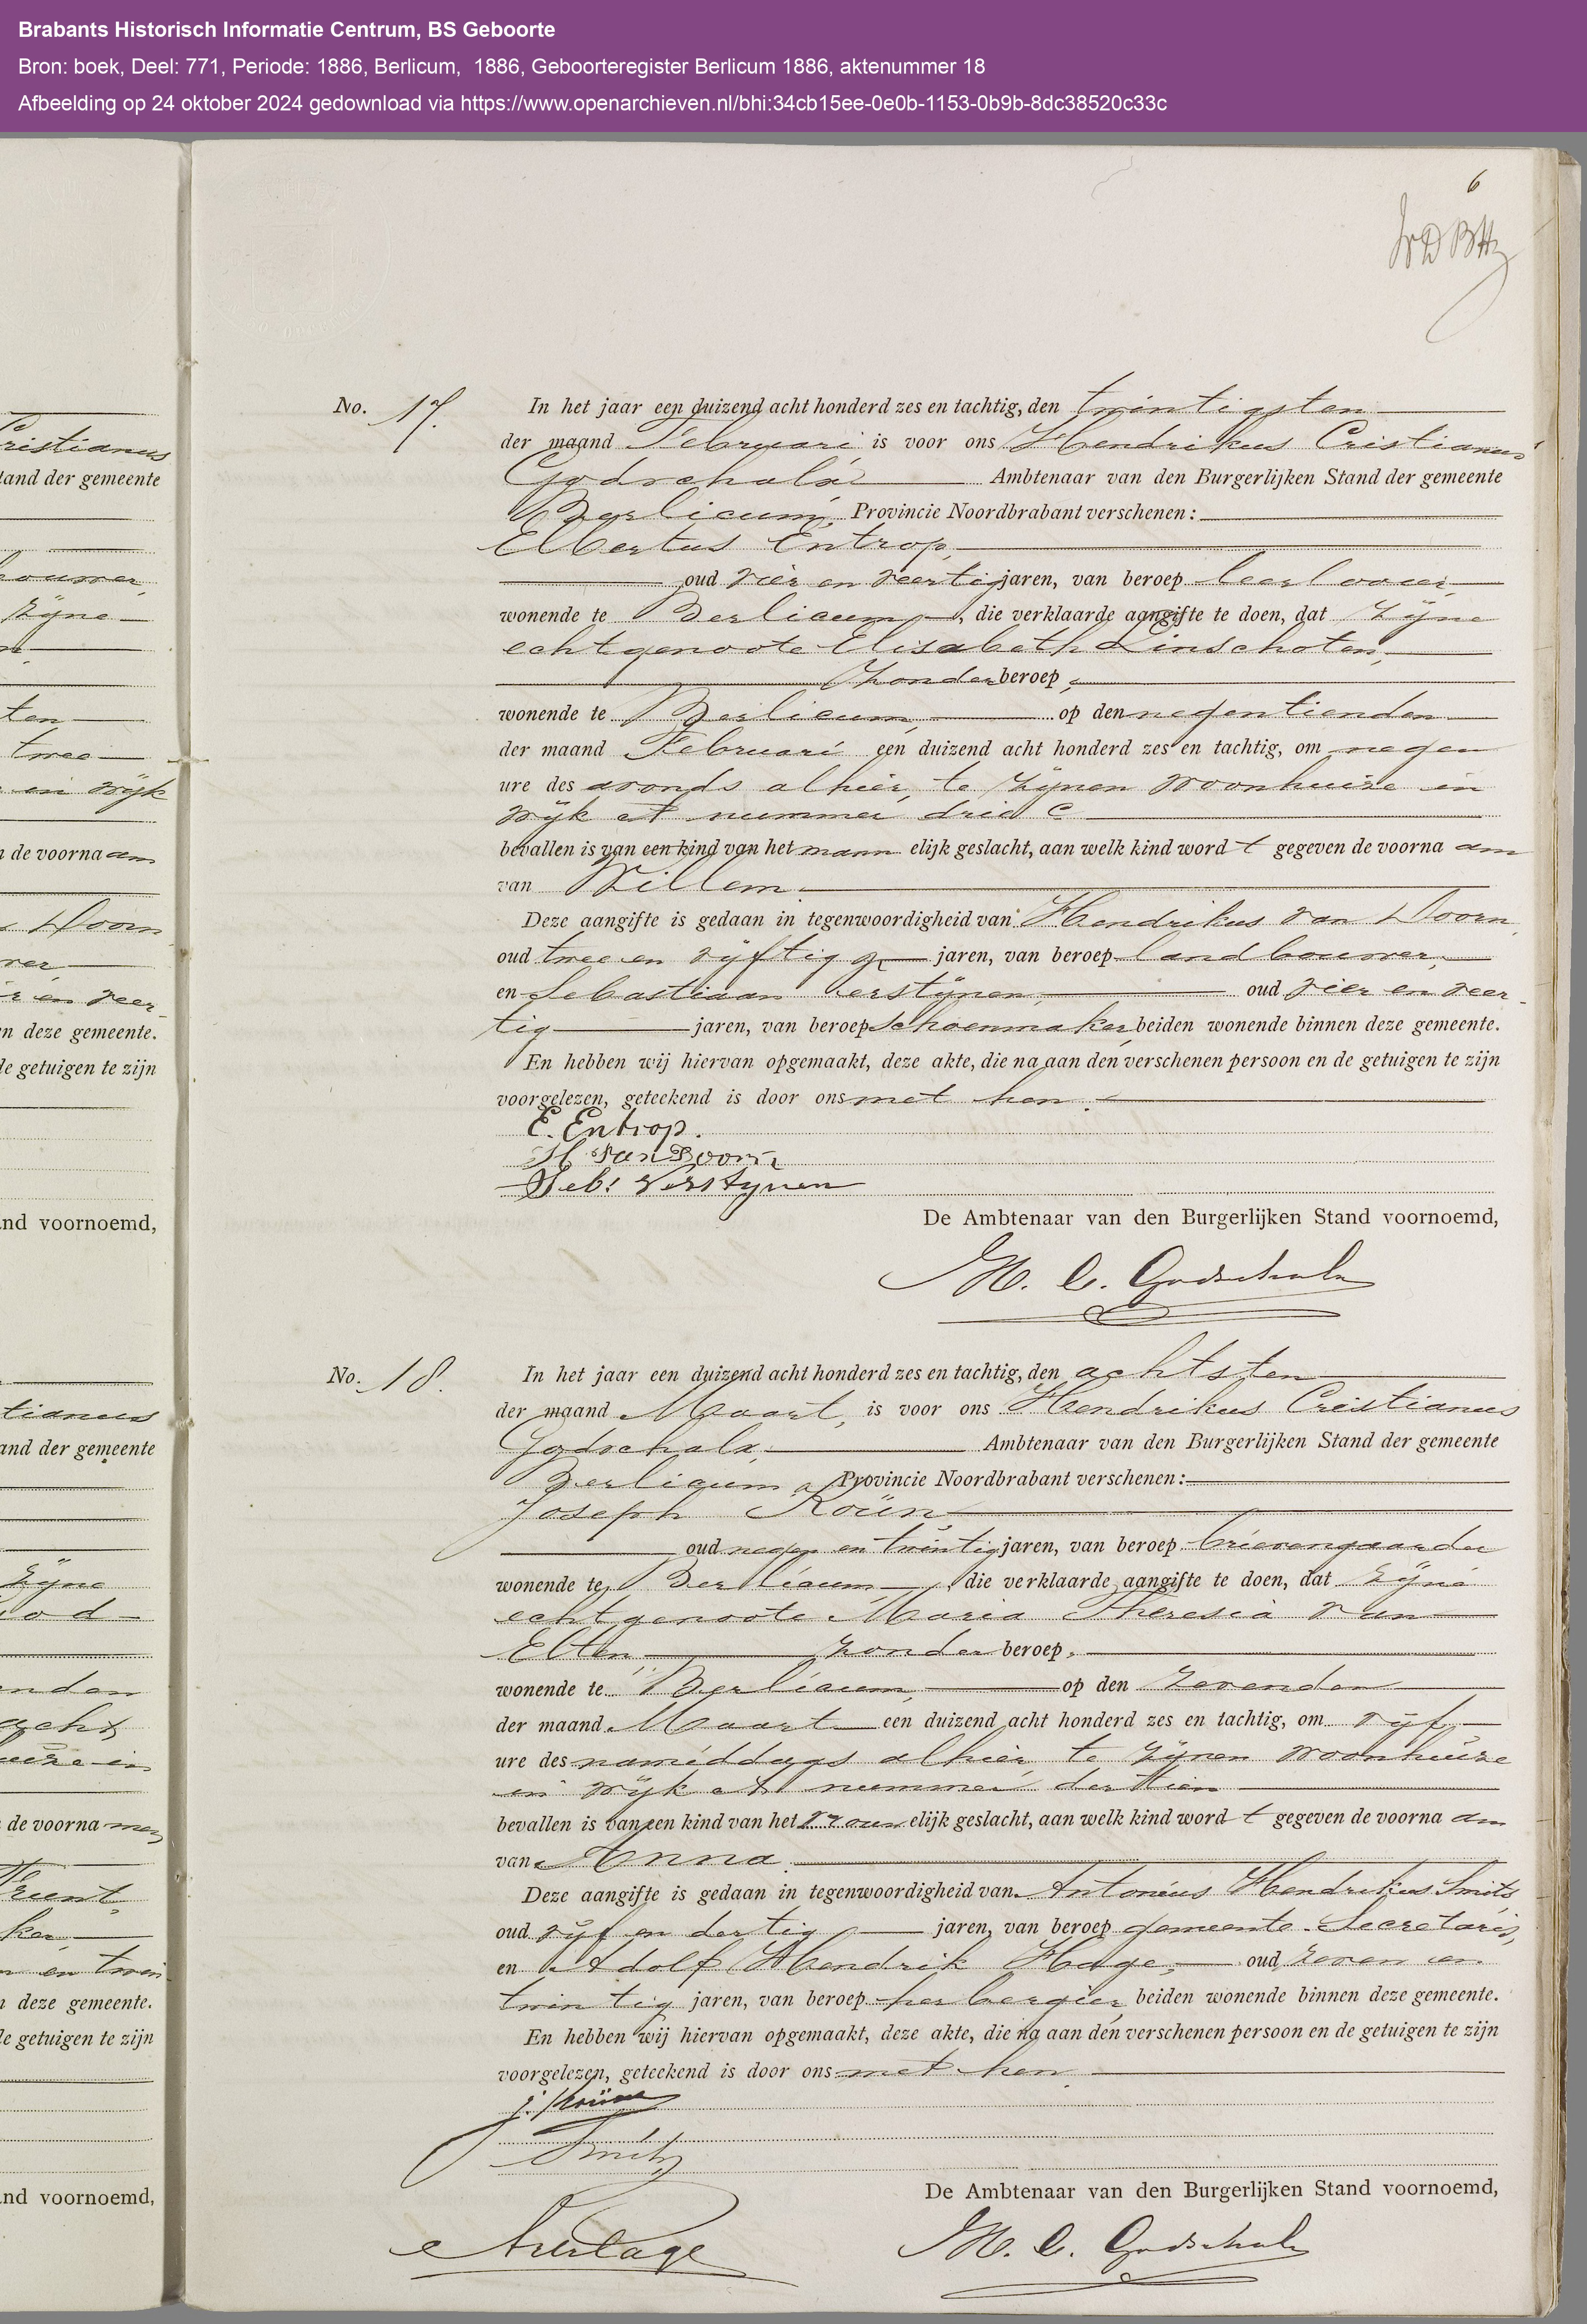 Brabants Historisch Informatie Centrum, BS Geboorte
Bron: boek, Deel: 771, Periode: 1886, Berlicum,  1886, Geboorteregister Berlicum 1886, aktenummer 18
Afbeelding op 24 oktober 2024 gedownload via https://www.openarchieven.nl/bhi:34cb15ee-0e0b-1153-0b9b-8dc38520c33c
6
No. 17. In het jaar een duizend acht honderd zes en tachtig, den twintigsten
der maand Februari is voor ons Hendrikus Cristianus
Godschalx Ambtenaar van den Burgerlijken Stand der gemeente
Berlicum, Provincie Noordbrabant verschenen:
Elbertus Entrop,
oud vier en veertig jaren, van beroep leerlooier,
wonende te Berlicum, die verklaarde aangifte te doen, dat zijne
echtgenoote Elisabeth Linschoten,
zonder beroep,
wonende te Berlicum, op den negentienden
der maand Februari een duizend acht honderd zes en tachtig, om negen
ure des avonds alhier, te zijnen woonhuize in
wijk A nummer drie C
bevallen is van een kind van het mann elijk geslacht, aan welk kind word t gegeven de voorna am
van Willem.
Deze aangifte is gedaan in tegenwoordigheid van Hendrikus van Doorn,
oud twee en vijftig jaren, van beroep landbouwer,
en Sebastiaan Verstijnen, oud vier en veer-
tig jaren, van beroep schoenmaker, beiden wonende binnen deze gemeente.
En hebben wij hiervan opgemaakt, deze akte, die na aan den verschenen persoon en de getuigen te zijn
voorgelezen, geteekend is door ons met hen.
E. Entrop.
H van Doorn
Seb: Verstynen
De Ambtenaar van den Burgerlijken Stand voornoemd,
H. C. Godschalx
No. 18. In het jaar een duizend acht honderd zes en tachtig, den achtsten
der maand Maart, is voor ons Hendrikus Cristianus
Godschalx, Ambtenaar van den Burgerlijken Stand der gemeente
Berlicum, Provincie Noordbrabant verschenen:
Joseph Koün,
oud negen en twintig jaren, van beroep brievengaarder
wonende te Berlicum, die verklaarde aangifte te doen, dat zijne
echtgenoote Maria Theresia van
Elten, zonder beroep,
wonende te Berlicum, op den zevenden
der maand Maart een duizend acht honderd zes en tachtig, om vijf
ure des namiddags alhier te zijnen woonhuize
in wijk A nummer dertien
bevallen is van een kind van het vrouw elijk geslacht, aan welk kind word t gegeven de voorna am
van Anna.
Deze aangifte is gedaan in tegenwoordigheid van Antonius Hendrikus Smits
oud vijf en dertig jaren, van beroep gemeente-Secretaris,
en Adolf Hendrik Hage, oud zeven en
twintig jaren, van beroep herbergier, beiden wonende binnen deze gemeente.
En hebben wij hiervan opgemaakt, deze akte, die na aan den verschenen persoon en de getuigen te zijn
voorgelezen, geteekend is door ons met hen.
Smits
De Ambtenaar van den Burgerlijken Stand voornoemd,
H. C. Godschalx